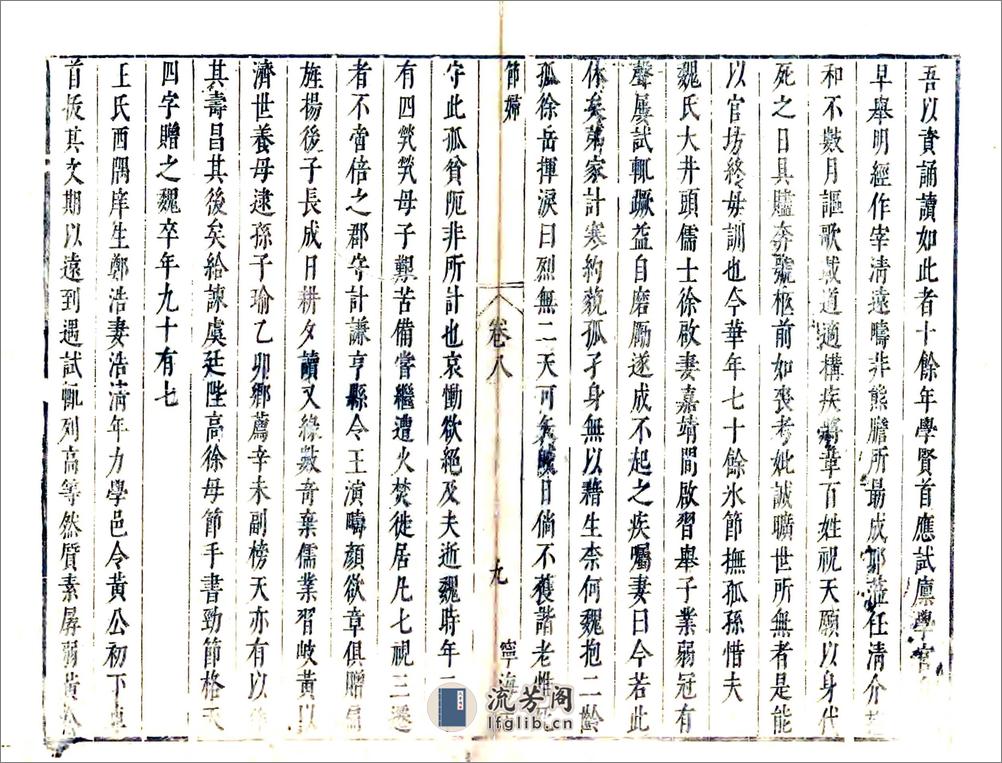 吾以資誦讀如此者十餘年學賢首應試廩學宮
早舉明經作宰清遠疇非熊膽所勗成耶蒞任清介
和不數月謳歌載道適構疾將革百姓祝天願以身代
死之日具賻奔號柩前如喪考妣誠曠世所無者是能
以官坊終母訓也今華年七十餘氷節撫孤孫惜夫
魏氏大井頭儒士徐啟妻嘉靖間啟習舉子業弱冠有
聲屢試輒蹶益自磨勵遂成不起之疾囑妻曰今若此
休矣第家計寒約藐孤孑身無以藉生柰何魏抱二齡
孤徐岳揮淚曰烈無二天可矣 日倘不獲諧老惟
節婦
卷八
九
寧海
守此孤貧阨非所計也哀慟欲絕及夫逝魏時年二
有四煢煢母子艱苦備嘗繼遭火焚徙居凡七視三遷
者不啻倍之郡守計謙亨縣令王演疇顏欲章俱贈扁
旌揚後子長成日耕夕讀又緣數奇棄儒業習岐黃以
濟世養母逮孫子瑜乙卯鄉薦辛未副榜天亦有以
其壽昌其後矣給諫虞廷陛高徐母節手書勁節格天
四字贈之魏卒年九十有七
王氏西隅庠生鄭浩妻浩淸年力學邑令黃公初下車
首拔其文期以遠到遇試輒列高等然質素孱弱黃公
流芳阁
lfglib.cn